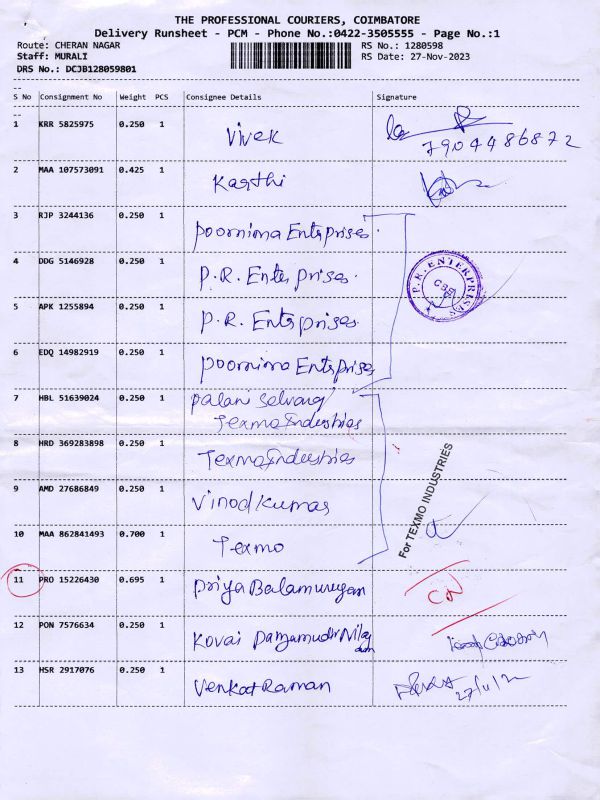 THE PROFESSIONAL COURIERS, COIMBATORE
Delivery Runsheet - PCM - Phone No.:0422-3505555 - Page No.:1
Route: CHERAN NAGAR RS No.: 1280598
Staff: MURALI RS Date: 27-Nov-2023
DRS No.: DCJB128059801
S No Consignment No Weight PCS Consignee Details Signature
1 KRR 5825975 0.250 1 Vivek
7904486872
2 MAA 107573091 0.425 1 Karthi
3 RJP 3244136 0.250 1 Poornima Enterprises.
4 DDG 5146928 0.250 1 P.R. Enterprises.
P.R. ENTERPRISES
CBE
5 APK 1255894 0.250 1 P.R. Enterprises.
6 EDQ 14982919 0.250 1 Poornima Enterprises
7 HBL 51639024 0.250 1 Palani Selvaraj
Texmo Industries
8 HRD 369283898 0.250 1 Texmo Industries
9 AMD 27686849 0.250 1 Vinod Kumar
For TEXMO INDUSTRIES
10 MAA 862841493 0.700 1 Texmo
11 PRO 15226430 0.695 1 Priya Balamurugan
12 PON 7576634 0.250 1 Kovai
13 HSR 2917076 0.250 1 Venkat Raman